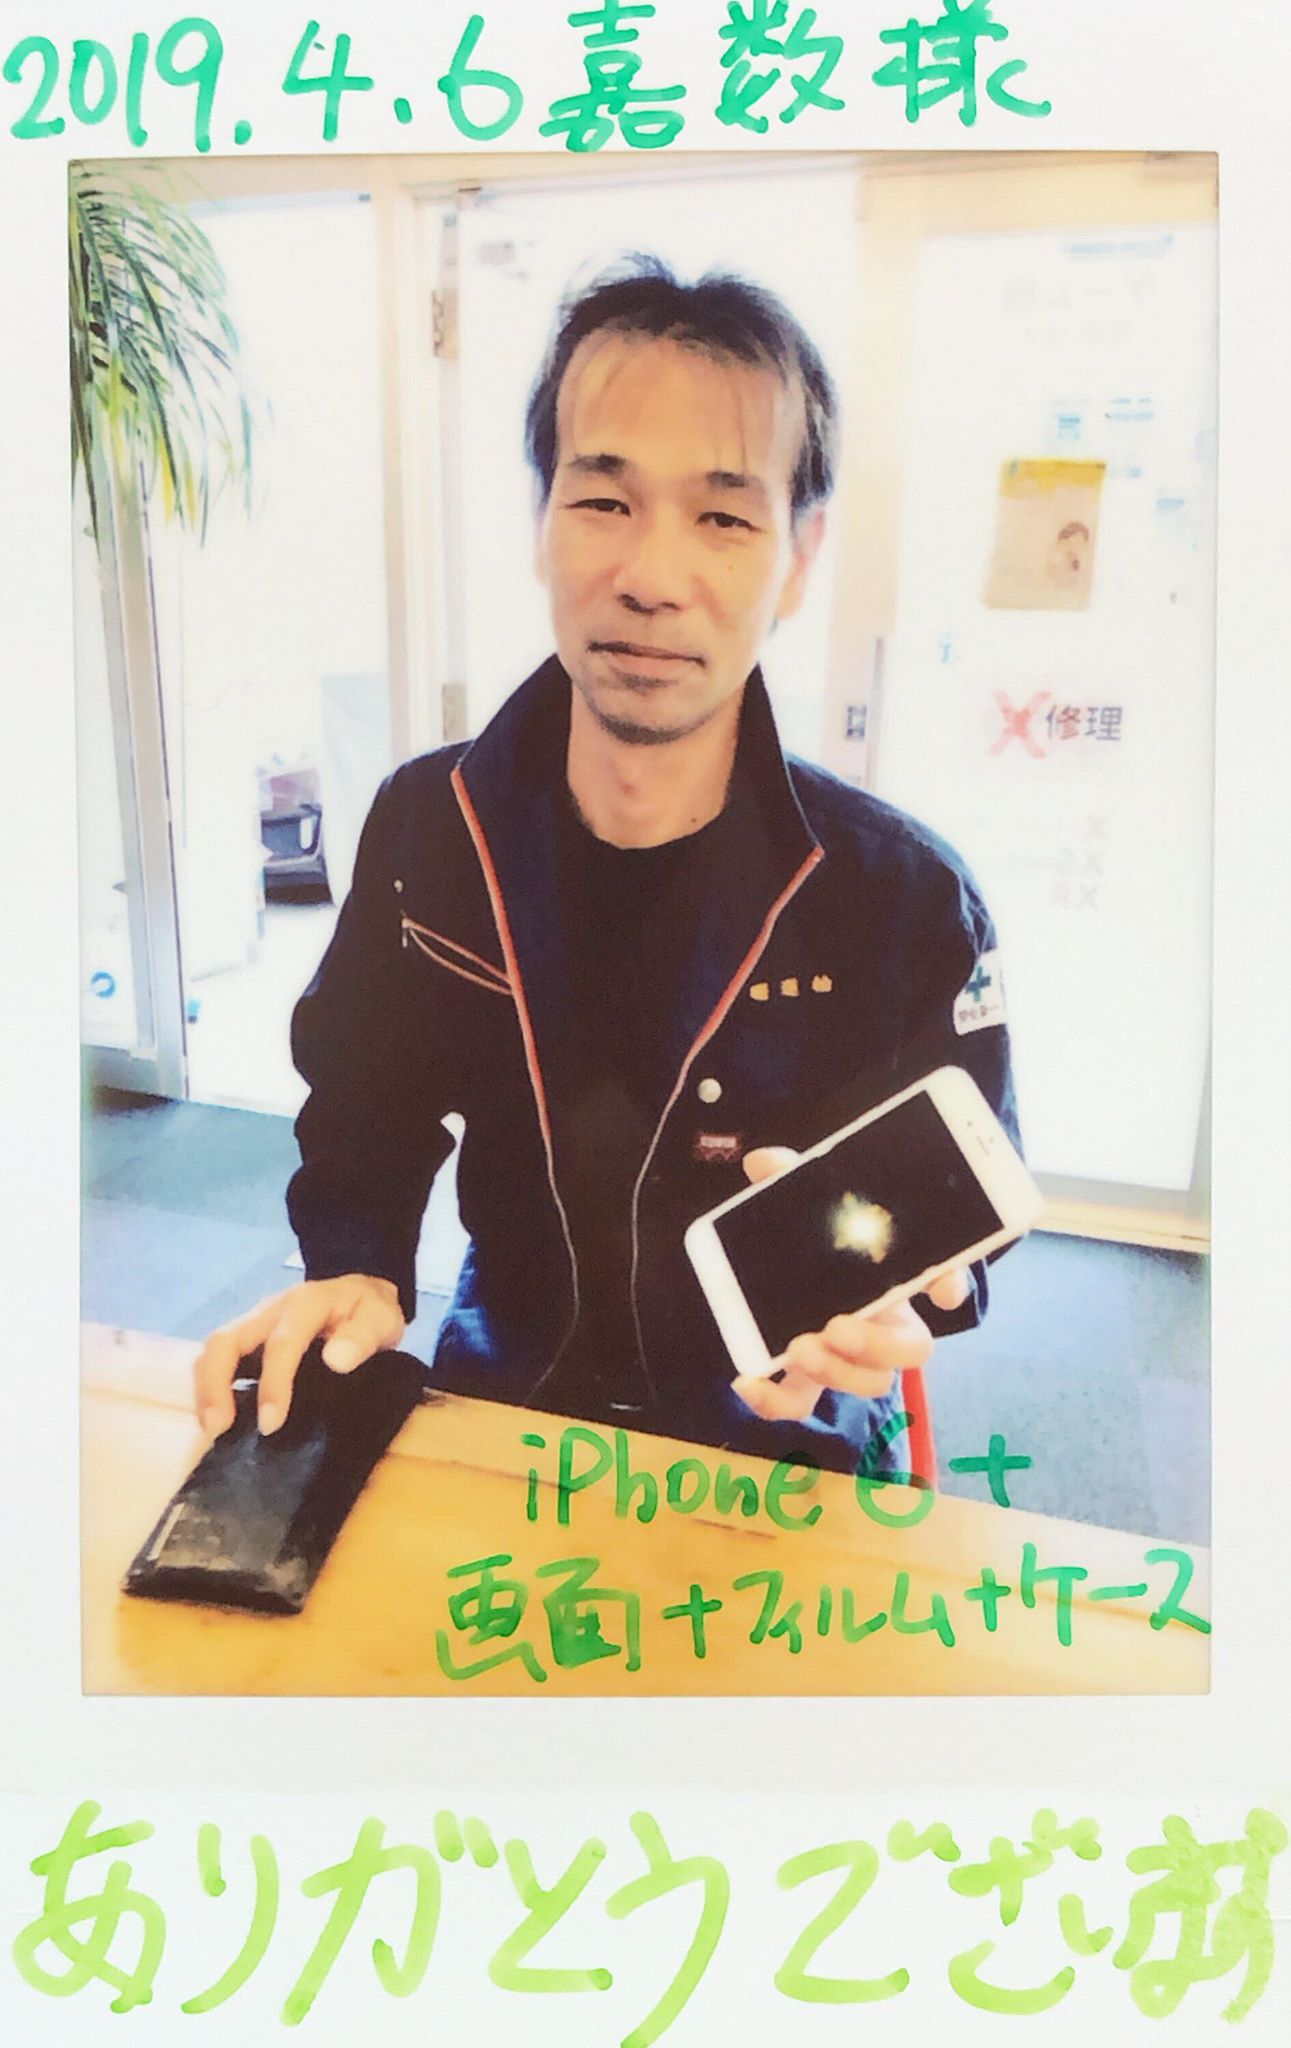 2019.4.6 嘉数様
修理
iPhone 6+
画面+フィルム+ケース
ありがとうございます